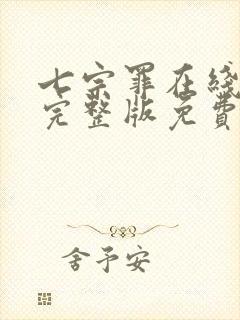 七宗罪在线
完整版免费
舍予安